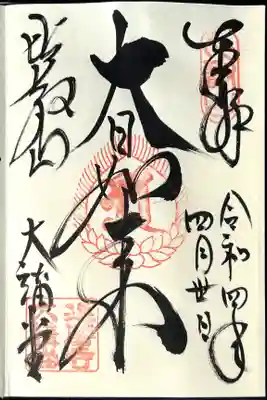 奉拝
令和四年
四月丗日
大日如来
比叡山
大講堂